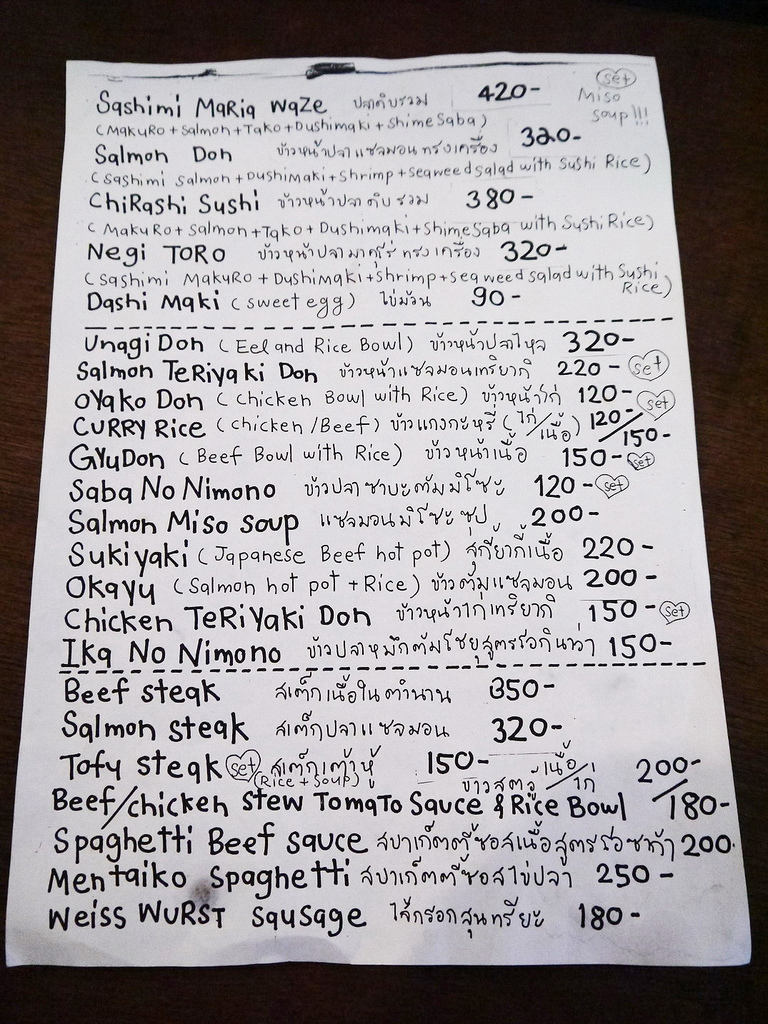 Sashimi Maria Waze ปลาดิบรวม 420- set
Miso soup!!!
(Makuro + Salmon + Tako + Dushimaki + Shime Saba)
Salmon Don ข้าวหน้าปลาแซลมอนทรงเครื่อง 320-
(Sashimi Salmon + Dushimaki + Shrimp + Seaweed Salad with Sushi Rice)
Chirashi Sushi ข้าวหน้าปลาดิบรวม 380-
(Makuro + Salmon + Tako + Dushimaki + Shime Saba with Sushi Rice)
Negi TORO ข้าวหน้าปลามากุโร่ทรงเครื่อง 320-
(Sashimi Makuro + Dushimaki + Shrimp + Seaweed Salad with Sushi Rice)
Dashi Maki (sweet egg) ไข่ม้วน 90-
Unagi Don (Eel and Rice Bowl) ข้าวหน้าปลาไหล 320-
Salmon Teriyaki Don ข้าวหน้าแซลมอนเทริยากิ 220- set
Oyako Don (chicken Bowl with Rice) ข้าวหน้าไก่ 120- set
CURRY Rice (chicken/Beef) ข้าวแกงกะหรี่ (ไก่/เนื้อ) 120-/150-
GyuDon (Beef Bowl with Rice) ข้าวหน้าเนื้อ 150- set
Saba No Nimono ข้าวปลาซาบะต้มมิโซะ 120- set
Salmon Miso soup แซลมอนมิโซะซุป 200-
Sukiyaki (Japanese Beef hot pot) สุกี้ยากี้เนื้อ 220-
Okayu (Salmon hot pot + Rice) ข้าวต้มแซลมอน 200-
Chicken TeRiYaki Don ข้าวหน้าไก่เทริยากิ 150- set
Ika No Nimono ข้าวปลาหมึกต้มโชยุสูตรร็อกินาว่า 150-
Beef steak สเต็กเนื้อในตำนาน 350-
Salmon steak สเต็กปลาแซลมอน 320-
Tofu steak set (Rice + Soup) สเต็กเต้าหู้ 150-
ข้าวสตูว์ เนื้อ/ไก่ 200-/180-
Beef/chicken Stew Tomato Sauce & Rice Bowl
Spaghetti Beef sauce สปาเก็ตตี้ซอสเนื้อสูตร 200.
Mentaiko Spaghetti สปาเก็ตตี้ซอสไข่ปลา 250-
Weiss WURST sausage ไส้กรอกสุนทรียะ 180-